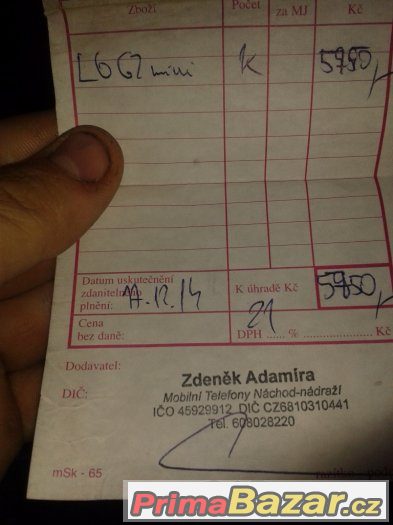 Zboží Počet za MJ Kč
LG G2 mini K 5950,-
Datum uskutečnění
zdanitelného
plnění: 17.12.14 K úhradě Kč 5950,-
Cena
bez daně: DPH 21 % Kč
Dodavatel:
DIČ:
Zdeněk Adamíra
Mobilní Telefony Náchod-nádraží
IČO 45929912 DIČ CZ6810310441
Tel. 608028220
mSk - 65
PrimaBazar.cz